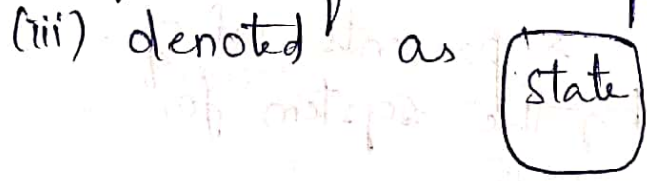 (iii) denoted as state